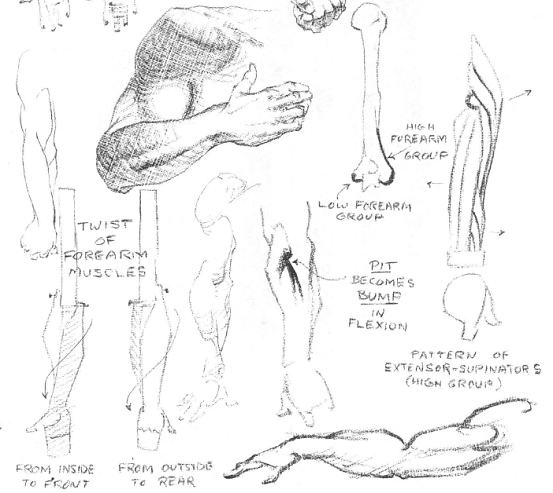 HIGH
FOREARM
GROUP
LOW FOREARM
GROUP
TWIST
OF
FOREARM
MUSCLES
PIT
BECOMES
BUMP
IN
FLEXION
PATTERN OF
EXTENSOR-SUPINATORS
(HIGH GROUP)
FROM INSIDE
TO FRONT
FROM OUTSIDE
TO REAR